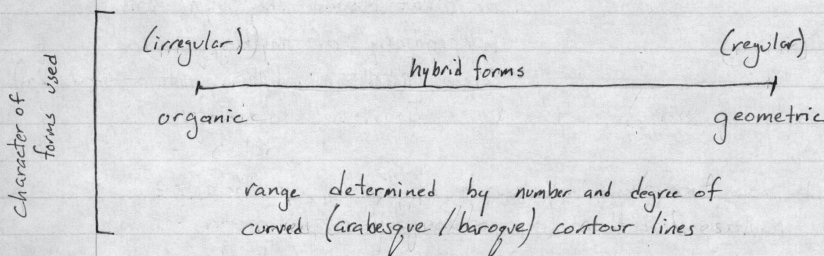 Character of
forms used
(irregular) (regular)
hybrid forms
organic geometric
range determined by number and degree of
curved (arabesque / baroque) contour lines